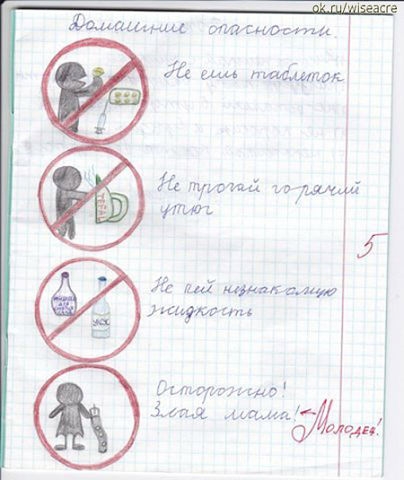 ok.ru/wiseacre
Домашние опасности.
Не ешь таблеток
Не трогай горячий
утюг
TEFAL
5
Не пей незнакомую
жидкость
УКС
Осторожно!
Злая мама!
Молодец!